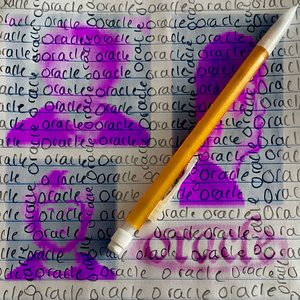 oracle oracle oracle oracle oracle oracle
oracle oracle oracle oracle oracle oracle
oracle oracle oracle oracle oracle
oracle oracle oracle oracle oracle oracle
oracle oracle oracle oracle oracle
oracle oracle oracle oracle oracle
oracle oracle oracle oracle oracle
oracle oracle oracle oracle oracle
oracle oracle oracle oracle oracle
oracle oracle oracle oracle oracle
oracle oracle oracle oracle oracle
oracle oracle oracle oracle oracle
oracle oracle oracle oracle
oracle
oracle oracle oracle oracle oracle oracle
oracle oracle oracle oracle oracle oracle